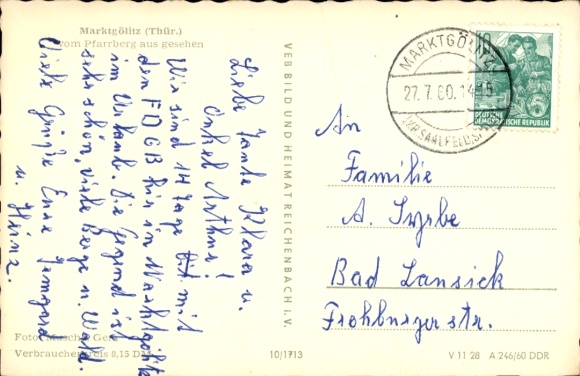 Marktgölitz (Thür.)
vom Pfarrberg aus gesehen
Liebe Tante Klara u.
Onkel Arthur!
Wir sind 14 Tage mit
den FDGB hir in Marktgölitz
im Urlaub. Die Gegend ist
sehr schön, viele Berge u. Wald.
Viele Grüße Eure Irmgard
u. Heinz.
Verbraucherpreis 0,15 DM
VEB BILD UND HEIMAT REICHENBACH i. V.
10/1713
MARKTGÖLITZ
27.7.60.14-15
10
DEUTSCHE
DEMOKRATISCHE REPUBLIK
An
Familie
A. Syrbe
Bad Lausick
Frohburgerstr.
V 11 28 A 246/60 DDR